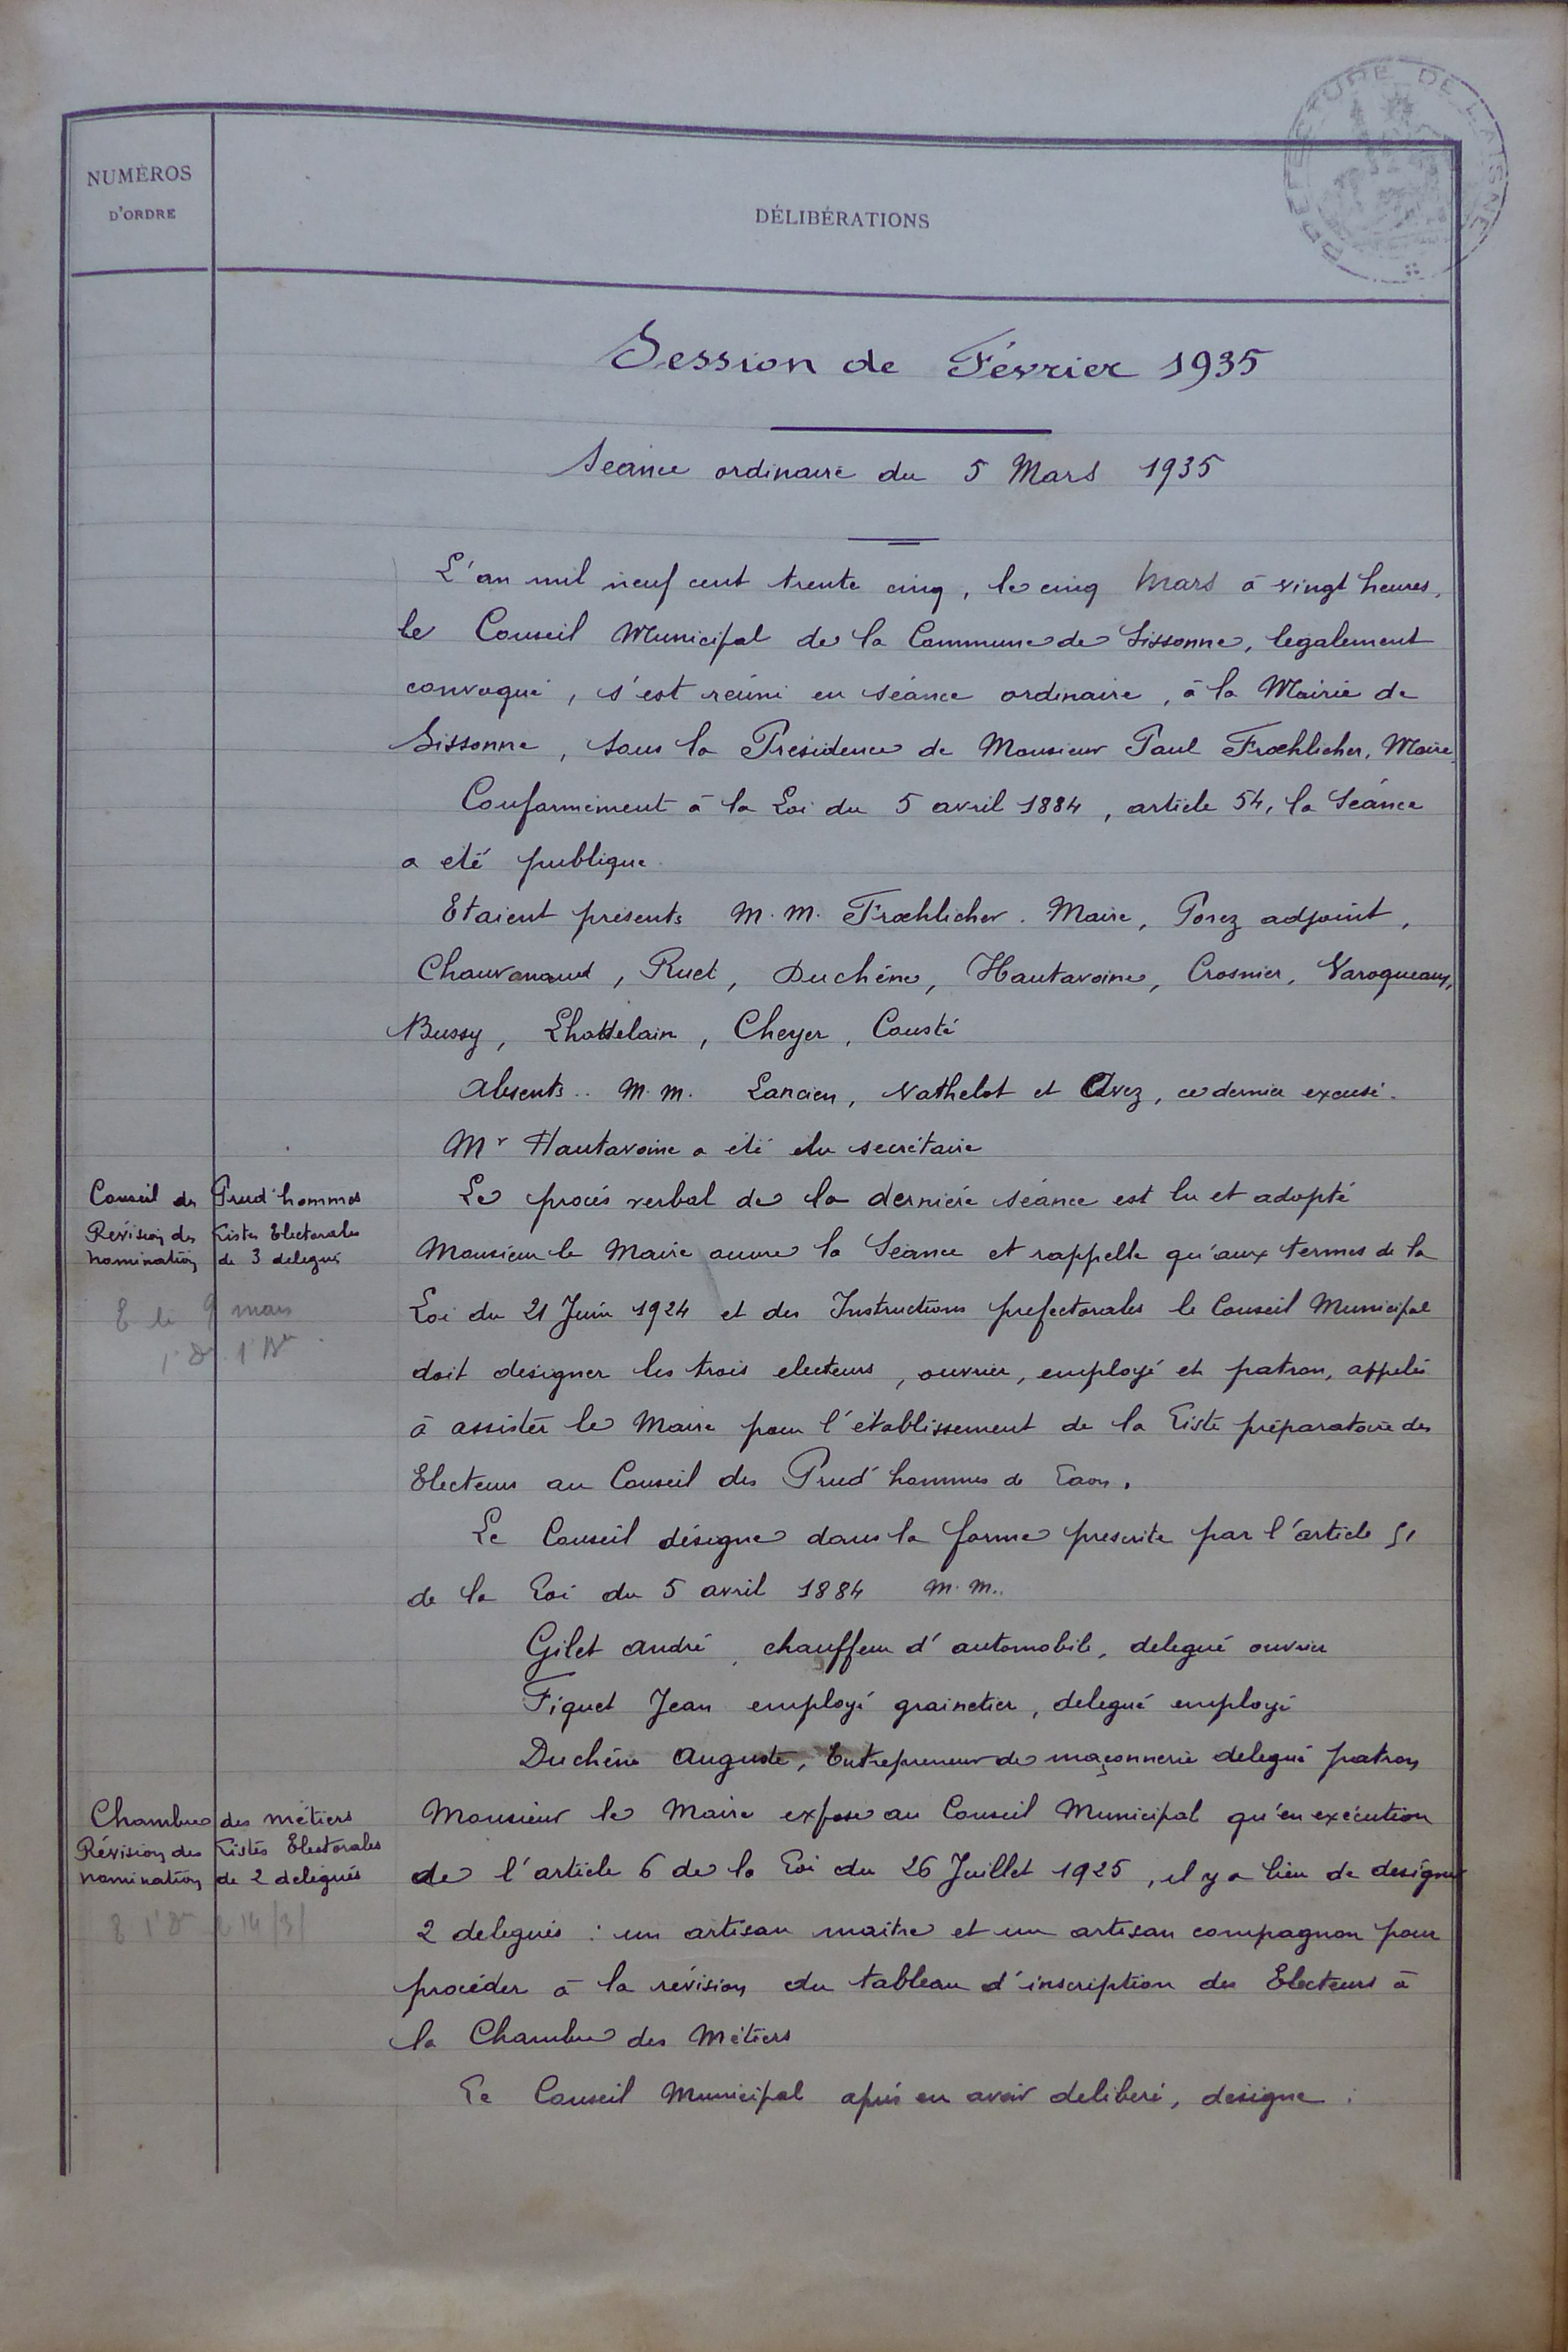 PREFECTURE DE L'AISNE
NUMÉROS
D'ORDRE
DÉLIBÉRATIONS
Session de Février 1935
Séance ordinaire du 5 Mars 1935
L'an mil neuf cent trente cinq, le cinq Mars à vingt heures,
le Conseil Municipal de la Commune de Sissonne, legalement
convoqué, s'est réuni en séance ordinaire, à la Mairie de
Sissonne, sous la Présidence de Monsieur Paul Froehlicher, Maire.
Conformément à la Loi du 5 avril 1884, article 54, la Séance
a été publique.
Etaient présents M.M. Froehlicher. Maire, Porez adjoint,
Chauvenaud, Ruet, Duchêne, Hautavoine, Crosnier, Varoqueaux,
Bussy, Lhottelain, Cheyer, Cousté
Absents.. M.M. Lancien, Nathelot et Avez, ce dernier excusé.
Mr Hautavoine a été élu secrétaire
Conseil des Prud'hommes
Révision des Listes Electorales
nomination de 3 delegués
E le 9 mars
Le procès verbal de la dernière séance est lu et adopté
Monsieur le Maire ouvre la Séance et rappelle qu'aux termes de la
Loi du 21 Juin 1924 et des Instructions prefectorales le Conseil Municipal
doit designer les trois electeurs, ouvrier, employé et patron, appelés
à assister le Maire pour l'établissement de la Liste préparatoire des
Electeurs au Conseil des Prud'hommes de Laon.
Le Conseil désigne dans la forme prescrite par l'article 51
de la Loi du 5 avril 1884 M.M..
Gilet André, chauffeur d'automobile, delegué ouvrier
Fiquet Jean employé grainetier, delegué employé
Duchêne Auguste, Entrepreneur de maçonnerie delegué patron
Chambre des métiers
Révision des Listes Electorales
nomination de 2 delegués
Monsieur le Maire expose au Conseil Municipal qu'en exécution
de l'article 6 de la Loi du 26 Juillet 1925, il y a lieu de designer
2 delegués : un artisan maitre et un artisan compagnon pour
procéder à la révision du tableau d'inscription des Electeurs à
la Chambre des Métiers
Le Conseil Municipal après en avoir deliberé, designe :